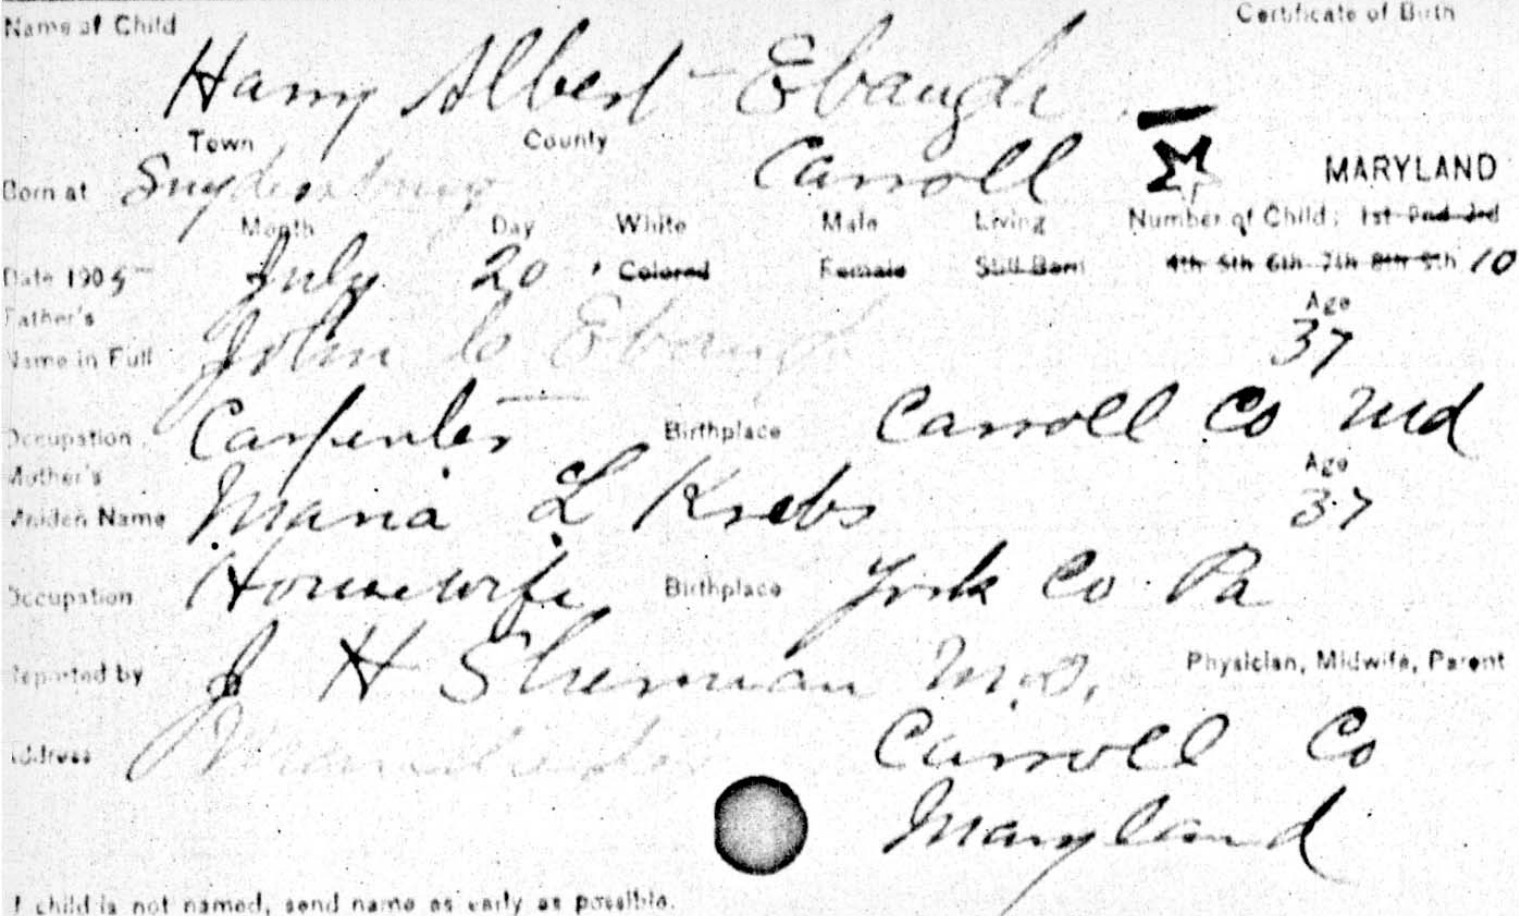 Name of Child Certificate of Birth
Harry Albert Ebaugh
Town County
Born at Snydersburg Carroll MARYLAND
Month Day White Male Living Number of Child: 1st 2nd 3rd
Date 1905 July 20 Colored Female Still Born 4th 5th 6th 7th 8th 9th 10
Father's Age
Name in Full John C Ebaugh 37
Occupation Carpenter Birthplace Carroll Co Md
Mother's Age
Maiden Name Maria L Krebs 37
Occupation Housewife Birthplace York Co Pa
Reported by J H Sherman M.D. Physician, Midwife, Parent
Address Manchester Carroll Co
Maryland
If child is not named, send name as early as possible.